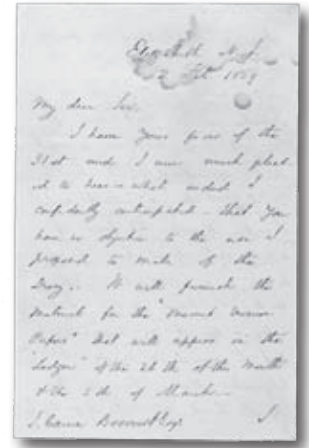 Elizabeth N. J.
2 Feb 1859
My dear Sir,
I have your favor of the
31st and I am much pleas-
ed to hear - what indeed I
confidently anticipated - that you
have no objection to the use I
propose to make of the
Diary. It will furnish the
material for the "Mount Vernon
Papers" that will appear in the
"Ledger" of the 26th of this month
& the 5th of March.
J. Carson Brevoort Esq.
I